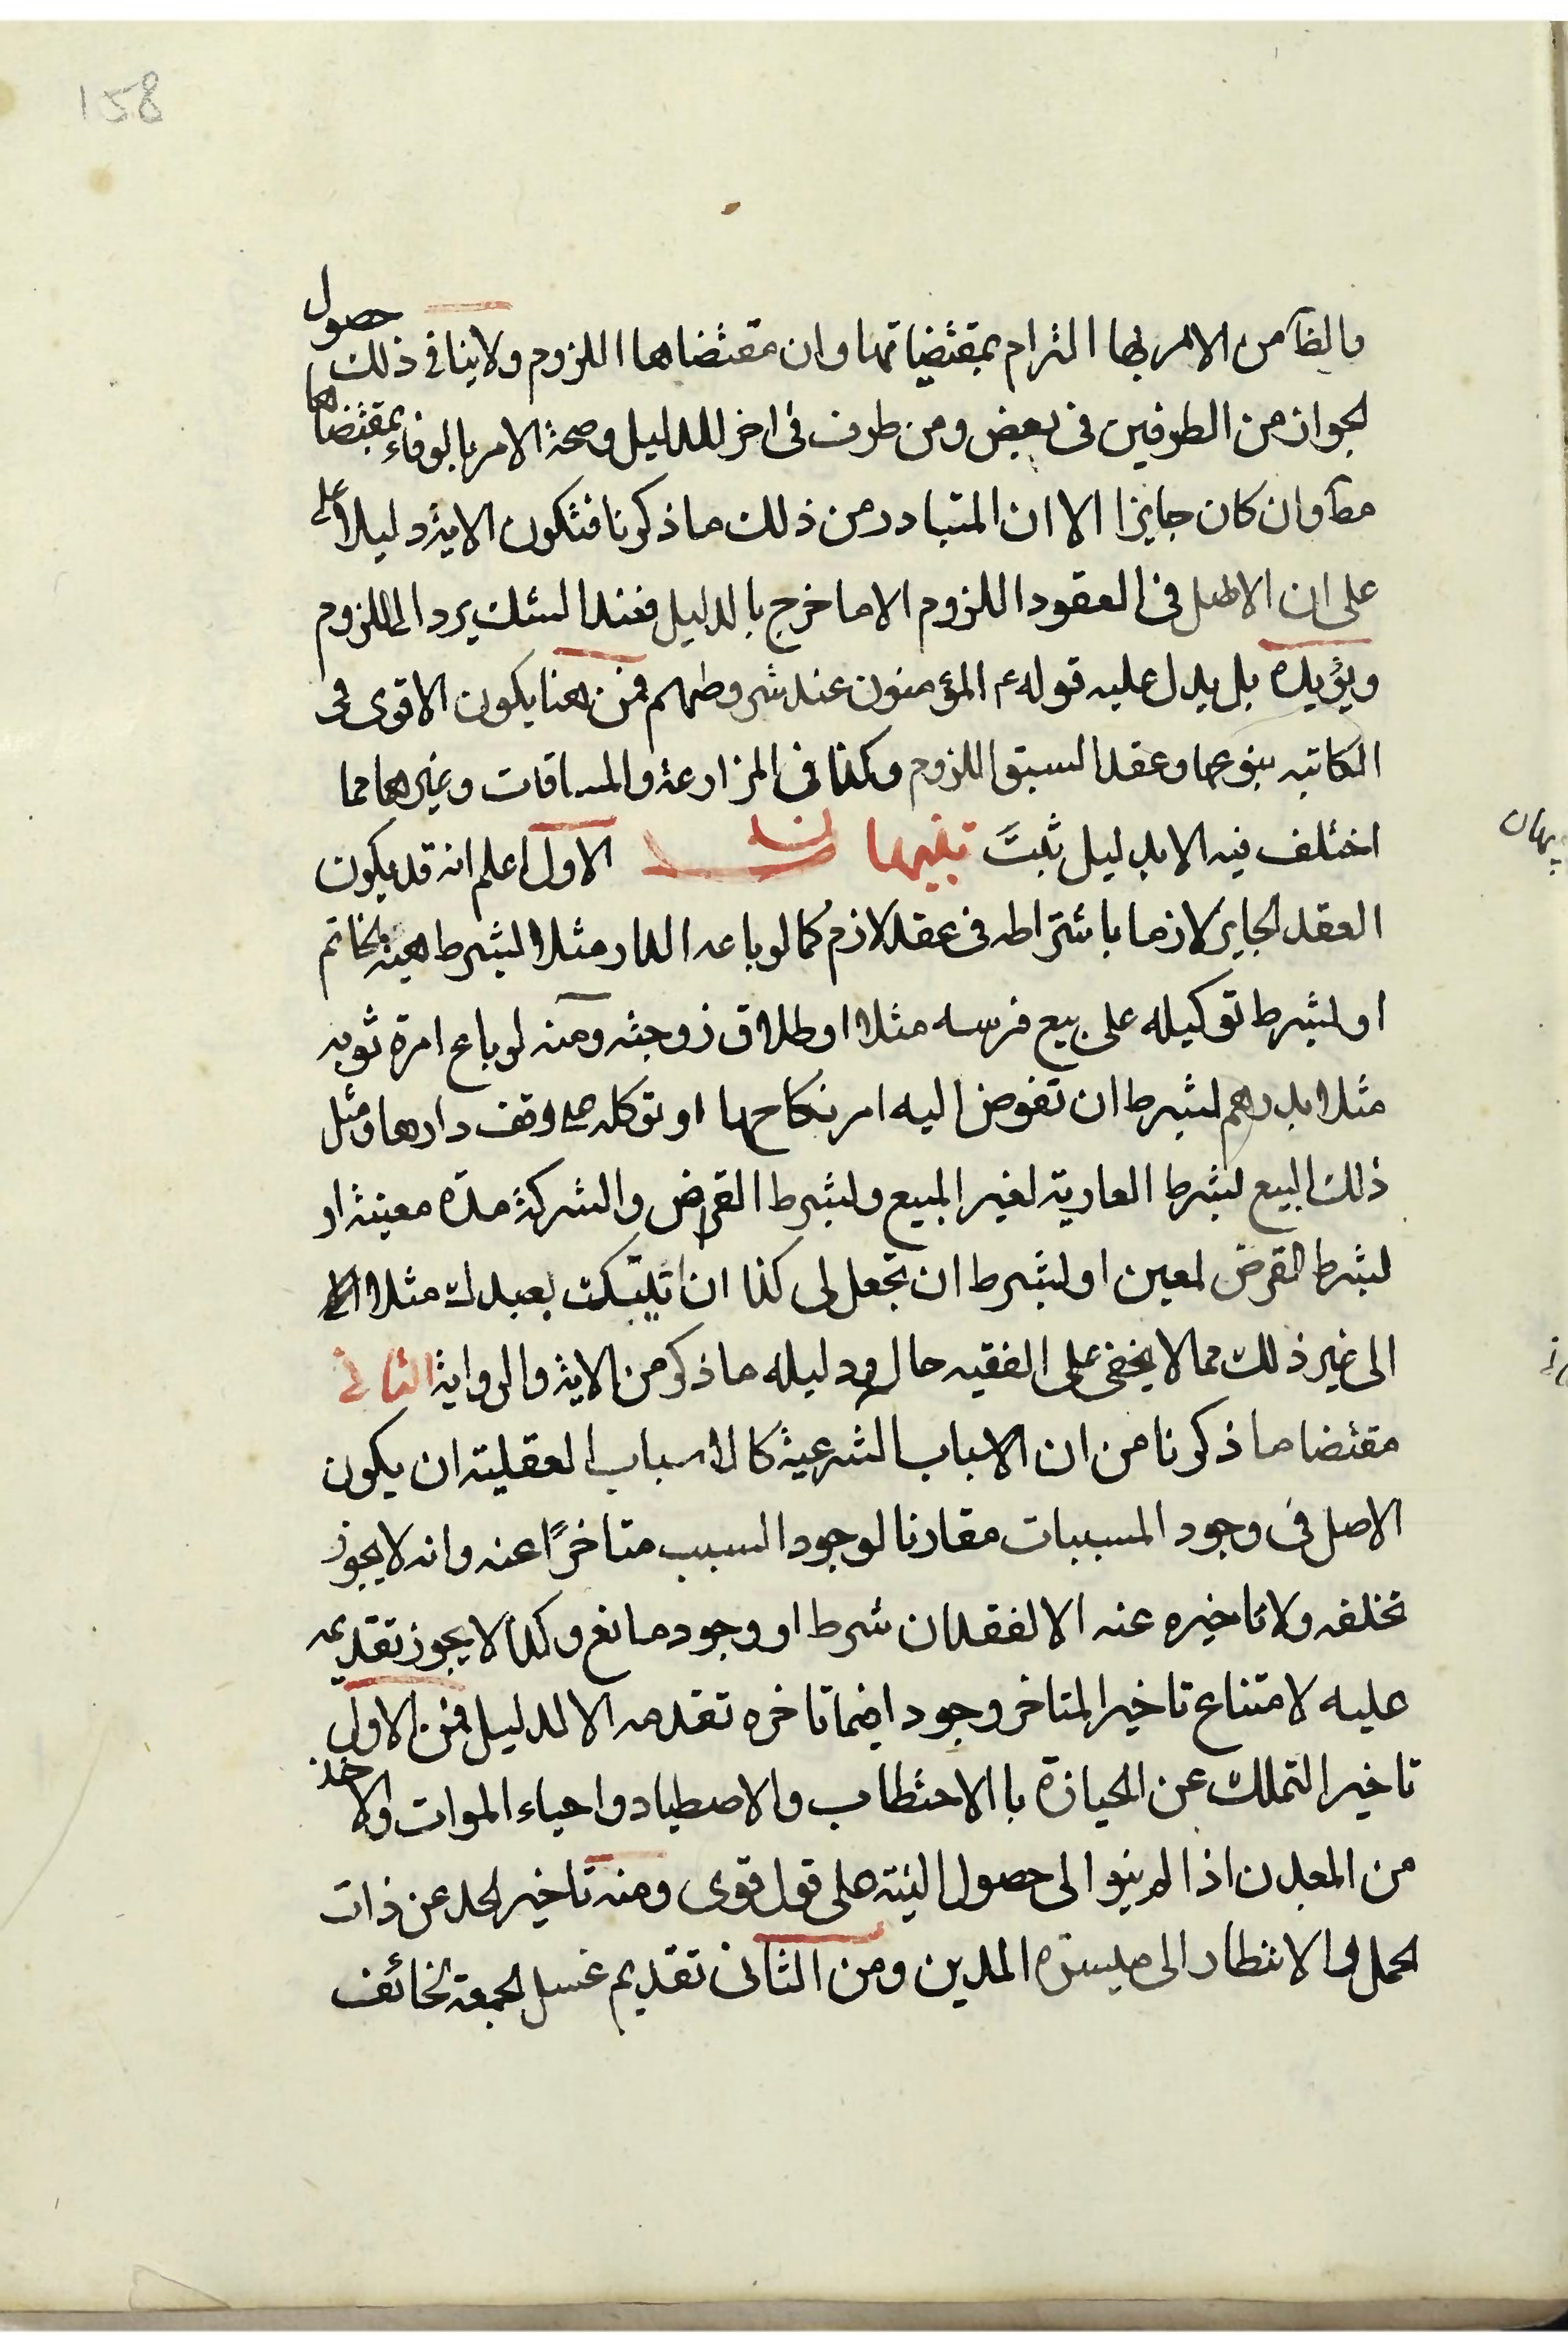 158
والظآ من الامر بها التزام بمقتضياتها وان مقتضاها اللزوم ولا ينافى ذلك حصول
الجواز من الطرفين فى بعض ومن طرف فى اخر للدليل وصحة الامر بالوفاء بمقتضاها
مطآ وان كان جايزا الا ان المتبادر من ذلك ما ذكرنا فتكون الاية دليلا على
على ان الاصل فى العقود اللزوم الا ما خرج بالدليل فعند الشك يرد الى اللزوم
ويؤيده بل يدل عليه قوله ع المؤمنون عند شروطهم فمن هنا يكون الاقوى فى
الكاتبه بنوعيها وعقد السبق اللزوم وكذا فى المزارعة والمساقات وغيرهما مما
اختلف فيه الا بدليل ثبتَ تنبيهان الاول اعلم انه قد يكون
العقد الجايز لازما باشتراطه فى عقد لازم كما لو باعه الدار مثلا بشرط هبة الخاتم
او بشرط توكيله على بيع فرسه مثلا او طلاق زوجته ومنه لو باع امرة ثوبه
مثلا بدرهم بشرط ان تفوض اليه امر نكاحها او توكله على وقف دارها ومثل
ذلك البيع بشرط العارية لغير المبيع وبشرط القرض والشركة مدة معينة او
بشرط القرض لمعين او بشرط ان تجعل لى كذا ان اتيتك بعبدك مثلا
الى غير ذلك مما لا يخفى على الفقيه حاله ودليله ما ذكر من الاية والرواية الثانى
مقتضا ما ذكرنا من ان الاسباب الشرعية كالاسباب العقلية ان يكون
الاصل فى وجود المسببات مقارنا لوجود السبب متاخرًا عنه وانه لا يجوز
تخلفه ولا تاخيره عنه الا لفقدان شرط او وجود مانع وكذا لا يجوز تقديمه
عليه لامتناع تاخير المتاخر وجود ايضا تاخره تقدمه الا لدليل فمن الاول
تاخير التملك عن الحيازة باالاحتطاب والاصطياد واحياء الموات والاخذ
من المعدن اذا لم ينو الى حصول النية على قول قوى ومنه تاخير الحد عن ذات
الحمل والانتظار الى ميسرة المدين ومن الثانى تقديم غسل الجمعة لخائف